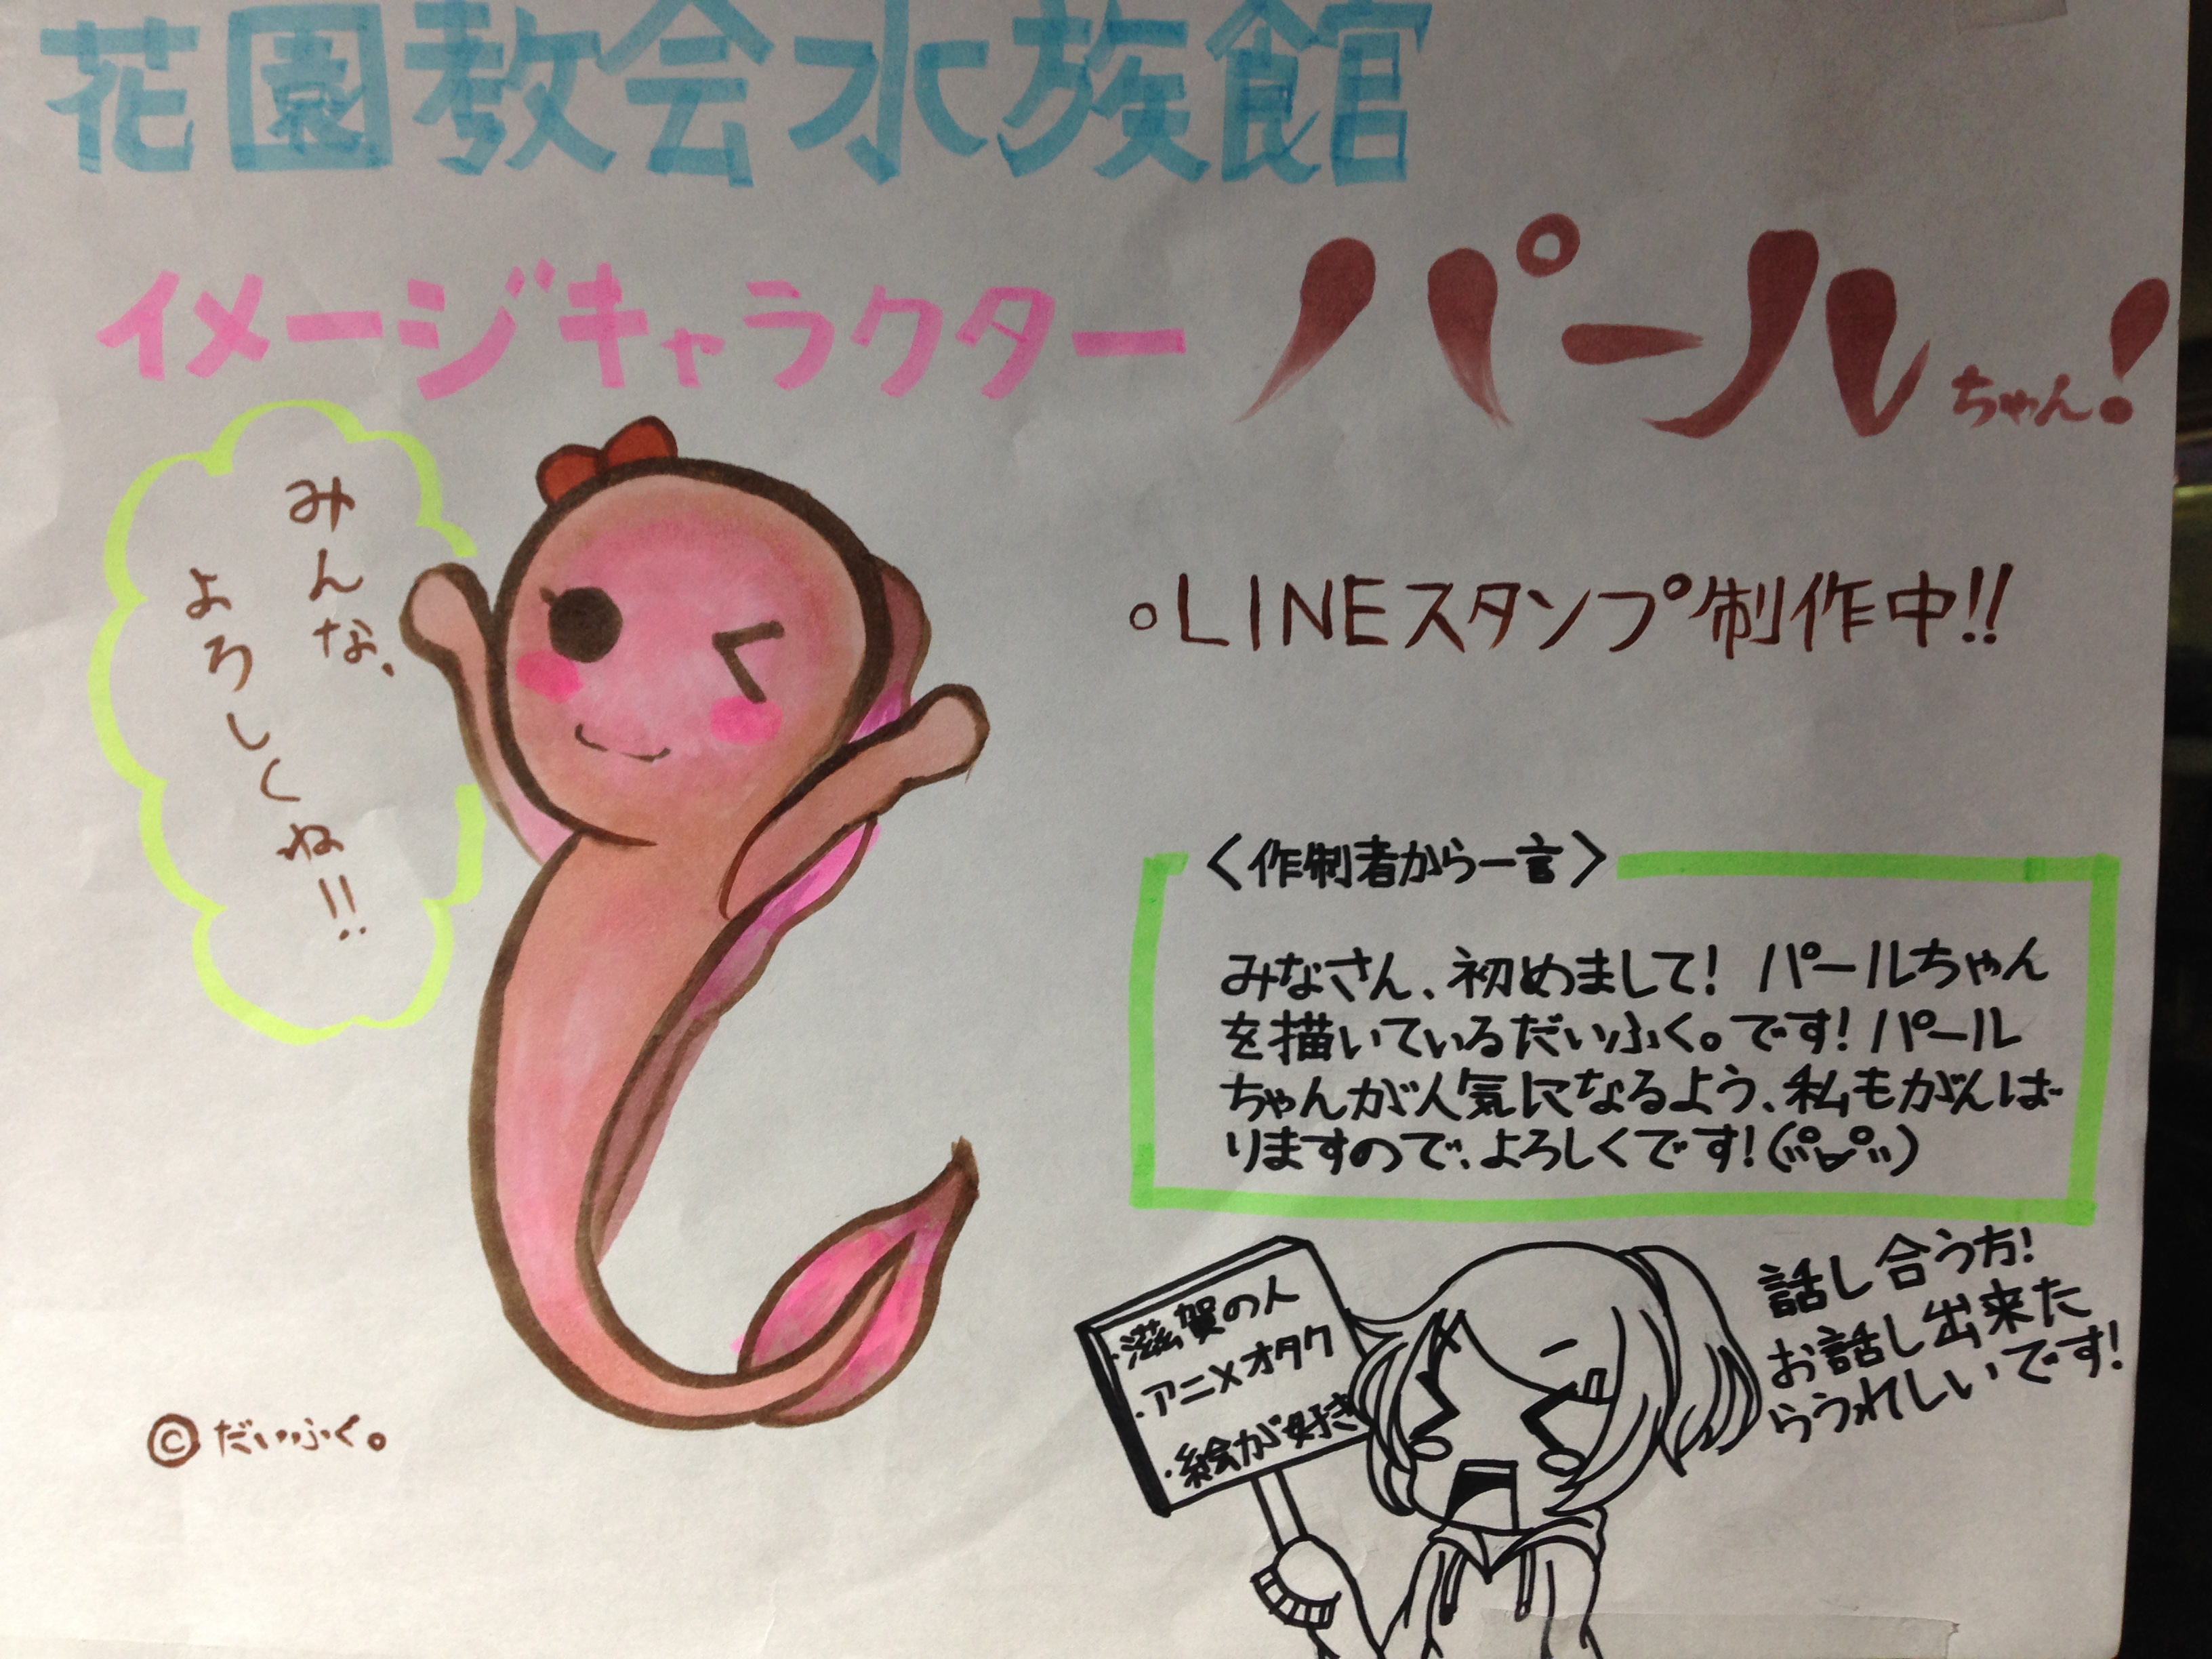 花園教会水族館
イメージキャラクター パールちゃん!
みんな、
よろしくね!!
。LINEスタンプ制作中!!
〈作制者から一言〉
みなさん、初めまして! パールちゃん
を描いているだいふく。です! パール
ちゃんが人気になるよう、私もがんば
りますので、よろしくです!
・滋賀の人
・アニメオタク
・絵が好き
話し合う方!
お話し出来た
らうれしいです!
©だいふく。